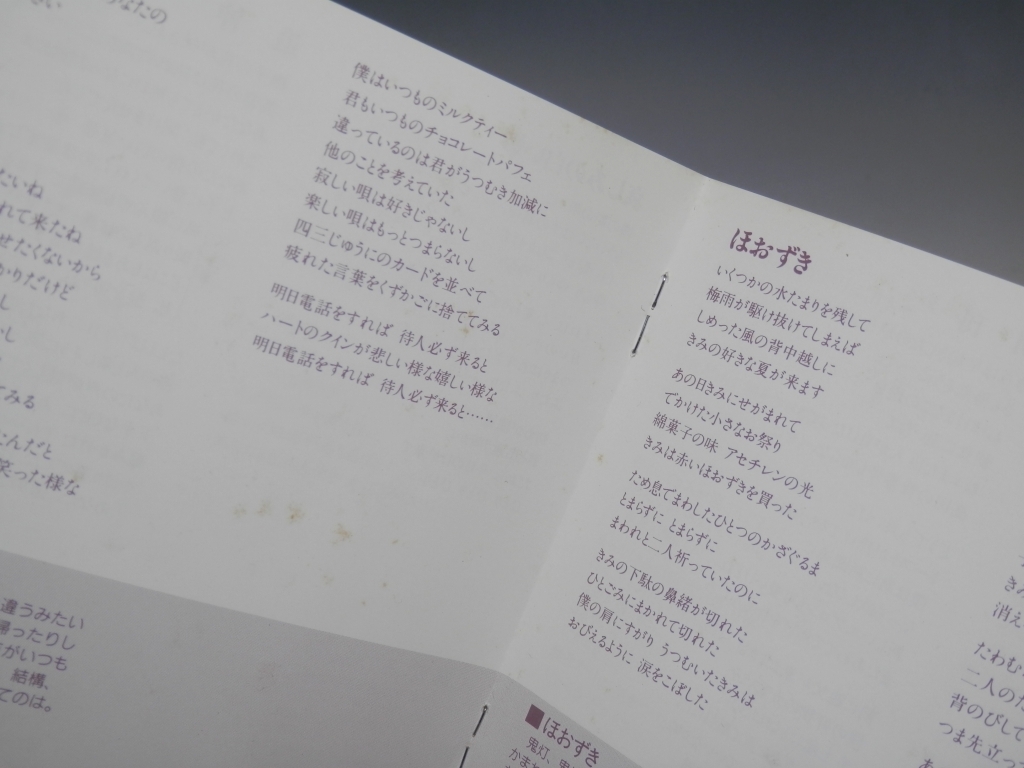 なたの
たいね
れて来たね
せたくないから
かりだけど
し
いし
てみる
こんだと
笑った様な
違うみたい
帰ったりし
がいつも
結構、
てのは。
僕はいつものミルクティー
君もいつものチョコレートパフェ
違っているのは君がうつむき加減に
他のことを考えていた
寂しい唄は好きじゃないし
楽しい唄はもっとつまらないし
四三じゅうにのカードを並べて
疲れた言葉をくずかごに捨ててみる
明日電話をすれば 待人必ず来ると
ハートのクインが悲しい様な嬉しい様な
明日電話をすれば 待人必ず来ると……
ほおずき
いくつかの水たまりを残して
梅雨が駆け抜けてしまえば
しめった風の背中越しに
きみの好きな夏が来ます
あの日きみにせがまれて
でかけた小さなお祭り
綿菓子の味 アセチレンの光
きみは赤いほおずきを買った
ため息でまわしたひとつのかざぐるま
とまらずに とまらずに
まわれと二人祈っていたのに
きみの下駄の鼻緒が切れた
ひとごみにまかれて切れた
僕の肩にすがり うつむいたきみは
おびえるように 涙をこぼした
■ほおずき
鬼灯、
かま
き
消え
たわむ
二人のた
背のびして
つま先立つ
あ